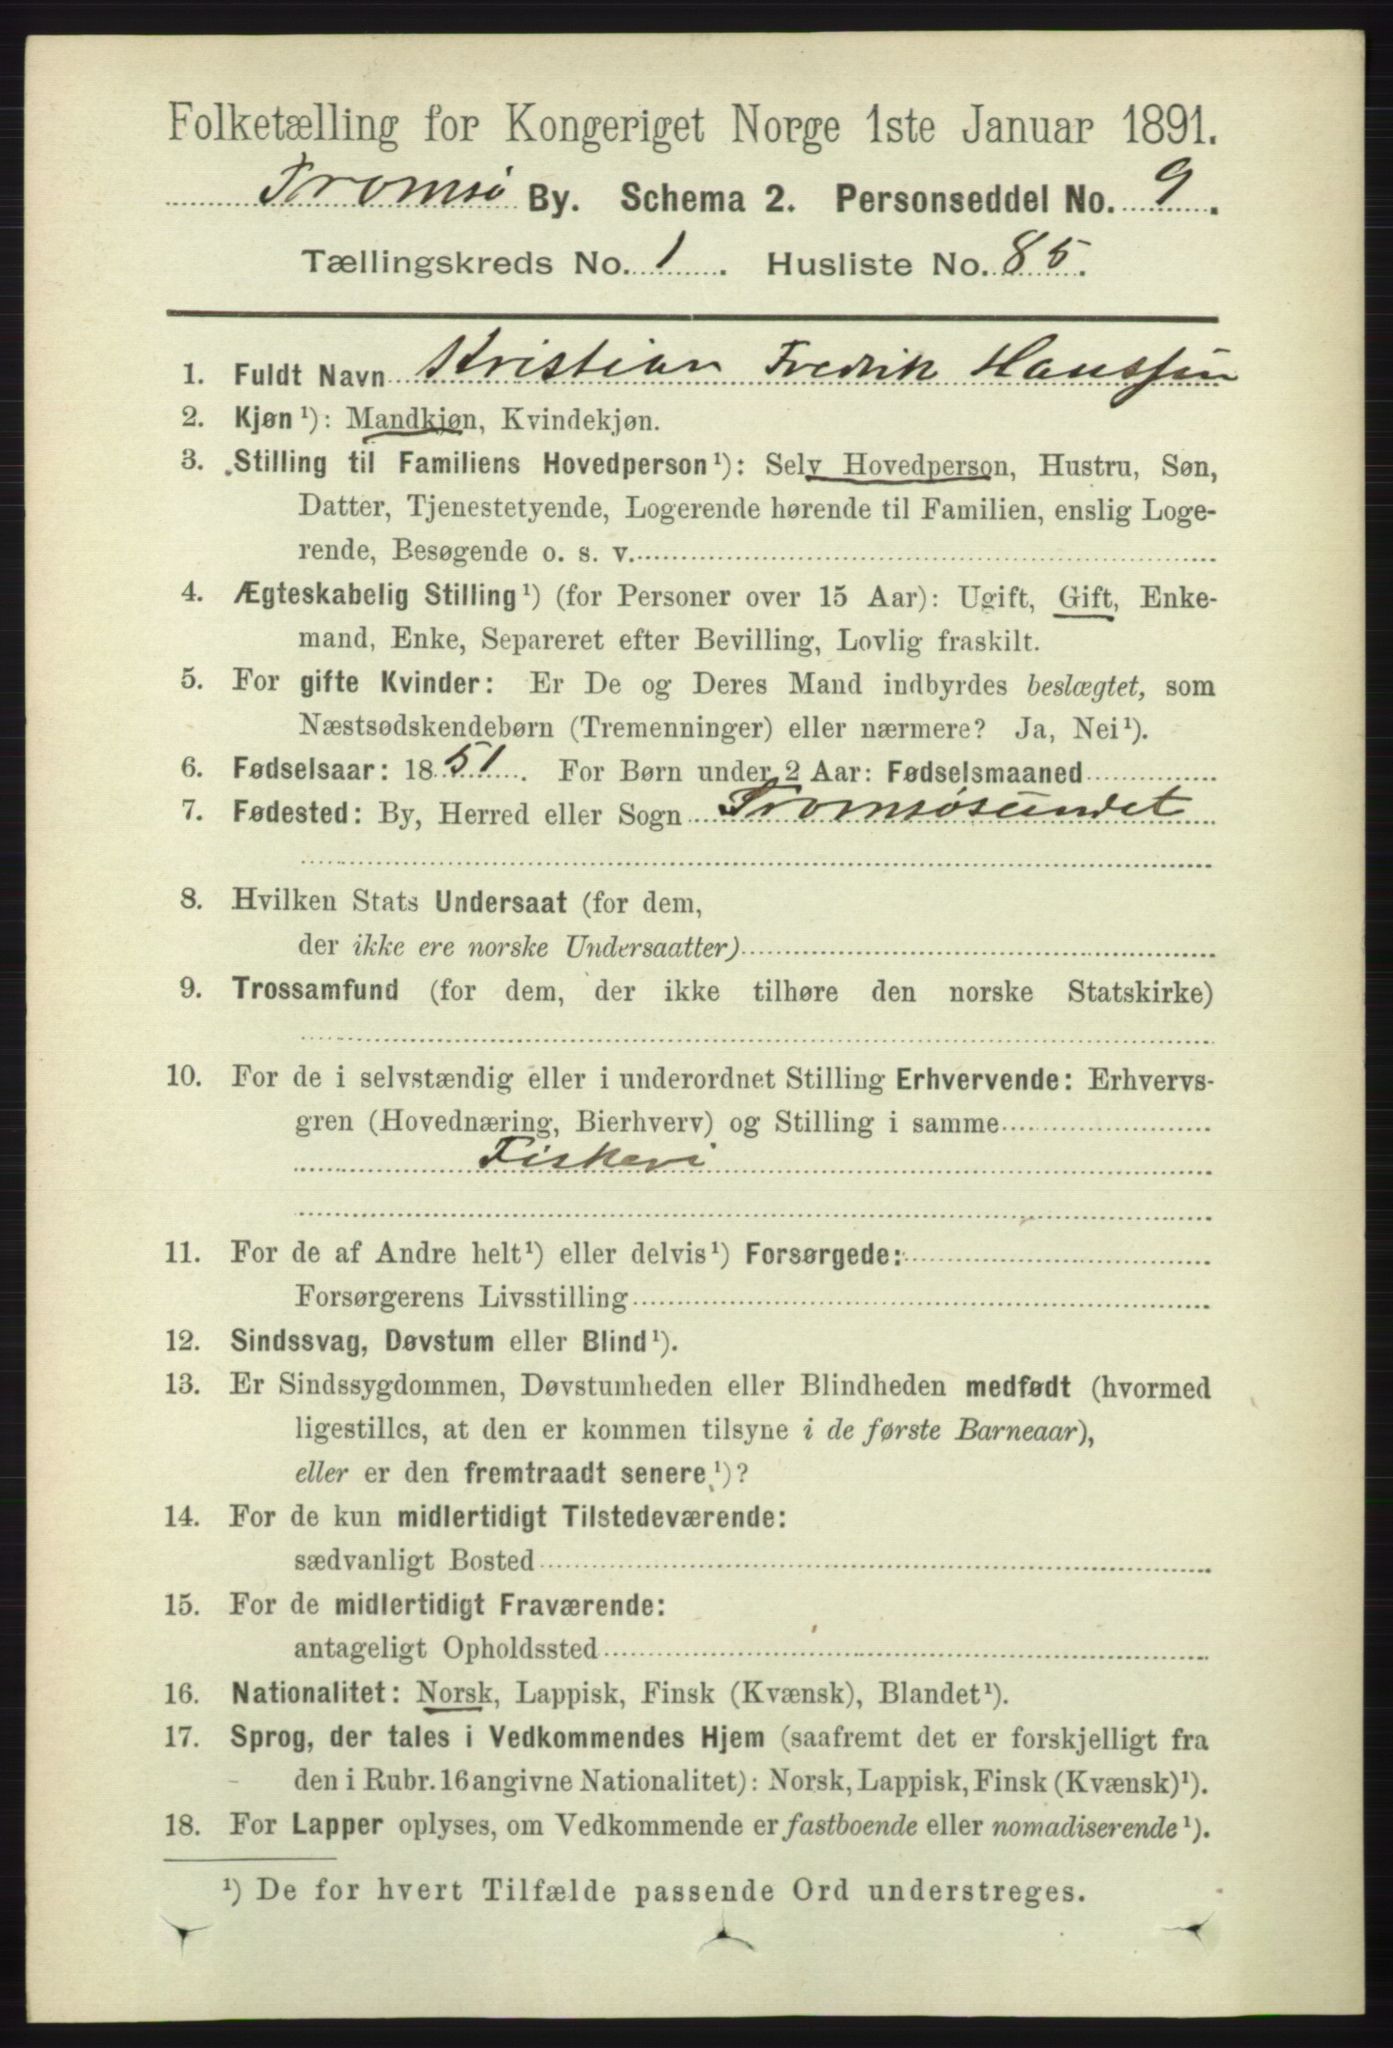 Folketælling for Kongeriget Norge 1ste Januar 1891.
Tromsø By. Schema 2. Personseddel No. 9.
Tællingskreds No. 1. Husliste No. 85.
1. Fuldt Navn Kristian Fredrik Hanssen
2. Kjøn¹): Mandkjøn, Kvindekjøn.
3. Stilling til Familiens Hovedperson¹): Selv Hovedperson, Hustru, Søn,
Datter, Tjenestetyende, Logerende hørende til Familien, enslig Loge-
rende, Besøgende o. s. v.
4. Ægteskabelig Stilling¹) (for Personer over 15 Aar): Ugift, Gift, Enke-
mand, Enke, Separeret efter Bevilling, Lovlig fraskilt.
5. For gifte Kvinder: Er De og Deres Mand indbyrdes beslægtet, som
Næstsødskendebørn (Tremenninger) eller nærmere? Ja, Nei¹).
6. Fødselsaar: 1851. For Børn under 2 Aar: Fødselsmaaned
7. Fødested: By, Herred eller Sogn Tromsøsundet
8. Hvilken Stats Undersaat (for dem,
der ikke ere norske Undersaatter)
9. Trossamfund (for dem, der ikke tilhøre den norske Statskirke)
10. For de i selvstændig eller i underordnet Stilling Erhvervende: Erhvervs-
gren (Hovednæring, Bierhverv) og Stilling i samme
Fiskeri
11. For de af Andre helt¹) eller delvis¹) Forsørgede:
Forsørgerens Livsstilling
12. Sindssvag, Døvstum eller Blind¹).
13. Er Sindssygdommen, Døvstumheden eller Blindheden medfødt (hvormed
ligestilles, at den er kommen tilsyne i de første Barneaar),
eller er den fremtraadt senere¹)?
14. For de kun midlertidigt Tilstedeværende:
sædvanligt Bosted
15. For de midlertidigt Fraværende:
antageligt Opholdssted
16. Nationalitet: Norsk, Lappisk, Finsk (Kvænsk), Blandet¹).
17. Sprog, der tales i Vedkommendes Hjem (saafremt det er forskjelligt fra
den i Rubr. 16 angivne Nationalitet): Norsk, Lappisk, Finsk (Kvænsk)¹).
18. For Lapper oplyses, om Vedkommende er fastboende eller nomadiserende¹).
¹) De for hvert Tilfælde passende Ord understreges.